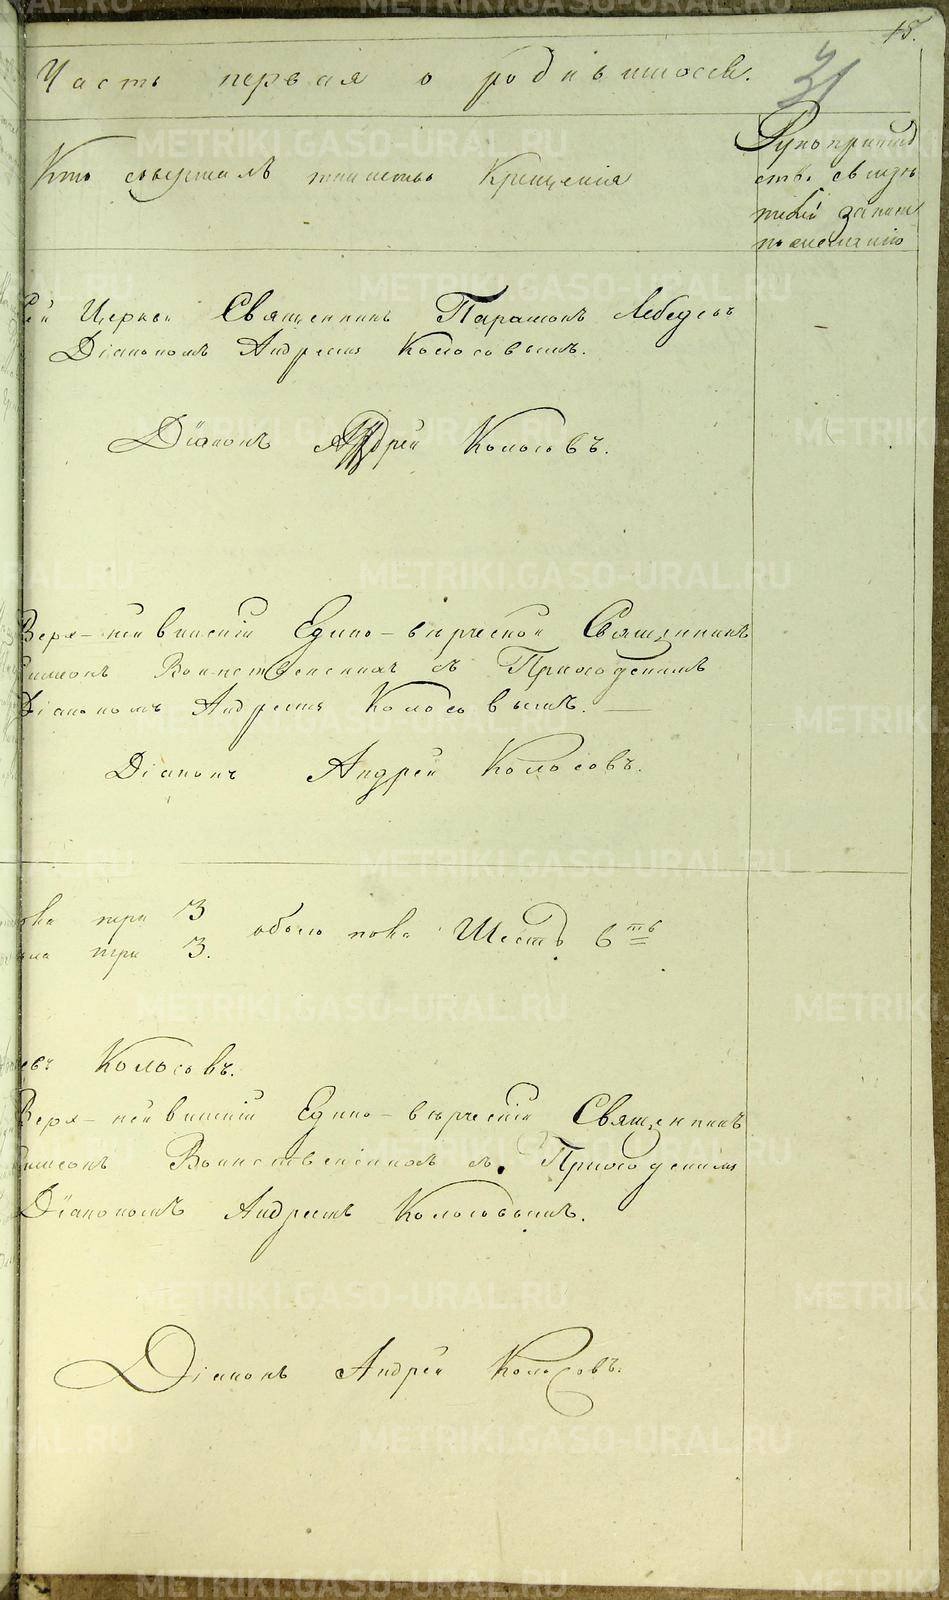 18.
31
Часть первая о родившихся.
Кто совершалъ таинство Крещенія
Рукоприклад
ство свидѣ
телей записи
по желанію
сей Церкви Священникъ Парамонъ Лебедевъ
Діакономъ Андреемъ Колосовымъ.
Діаконъ Андрей Колосовъ.
Верх-нейвинскій Едино-вѣрческой Священникъ
Симеонъ Воинственский съ Приходскимъ
Діакономъ Андреемъ Колосовымъ. —
Діаконъ Андрей Колосовъ.
три 3
обоего пола Шесть 6ть
три 3.
Колосовъ.
Верх-нейвинскій Едино-вѣрческій Священникъ
Симеонъ Воинственский съ Приходскимъ
Діакономъ Андреемъ Колосовымъ.
Діаконъ Андрей Колосовъ.
METRIKI.GASO-URAL.RU